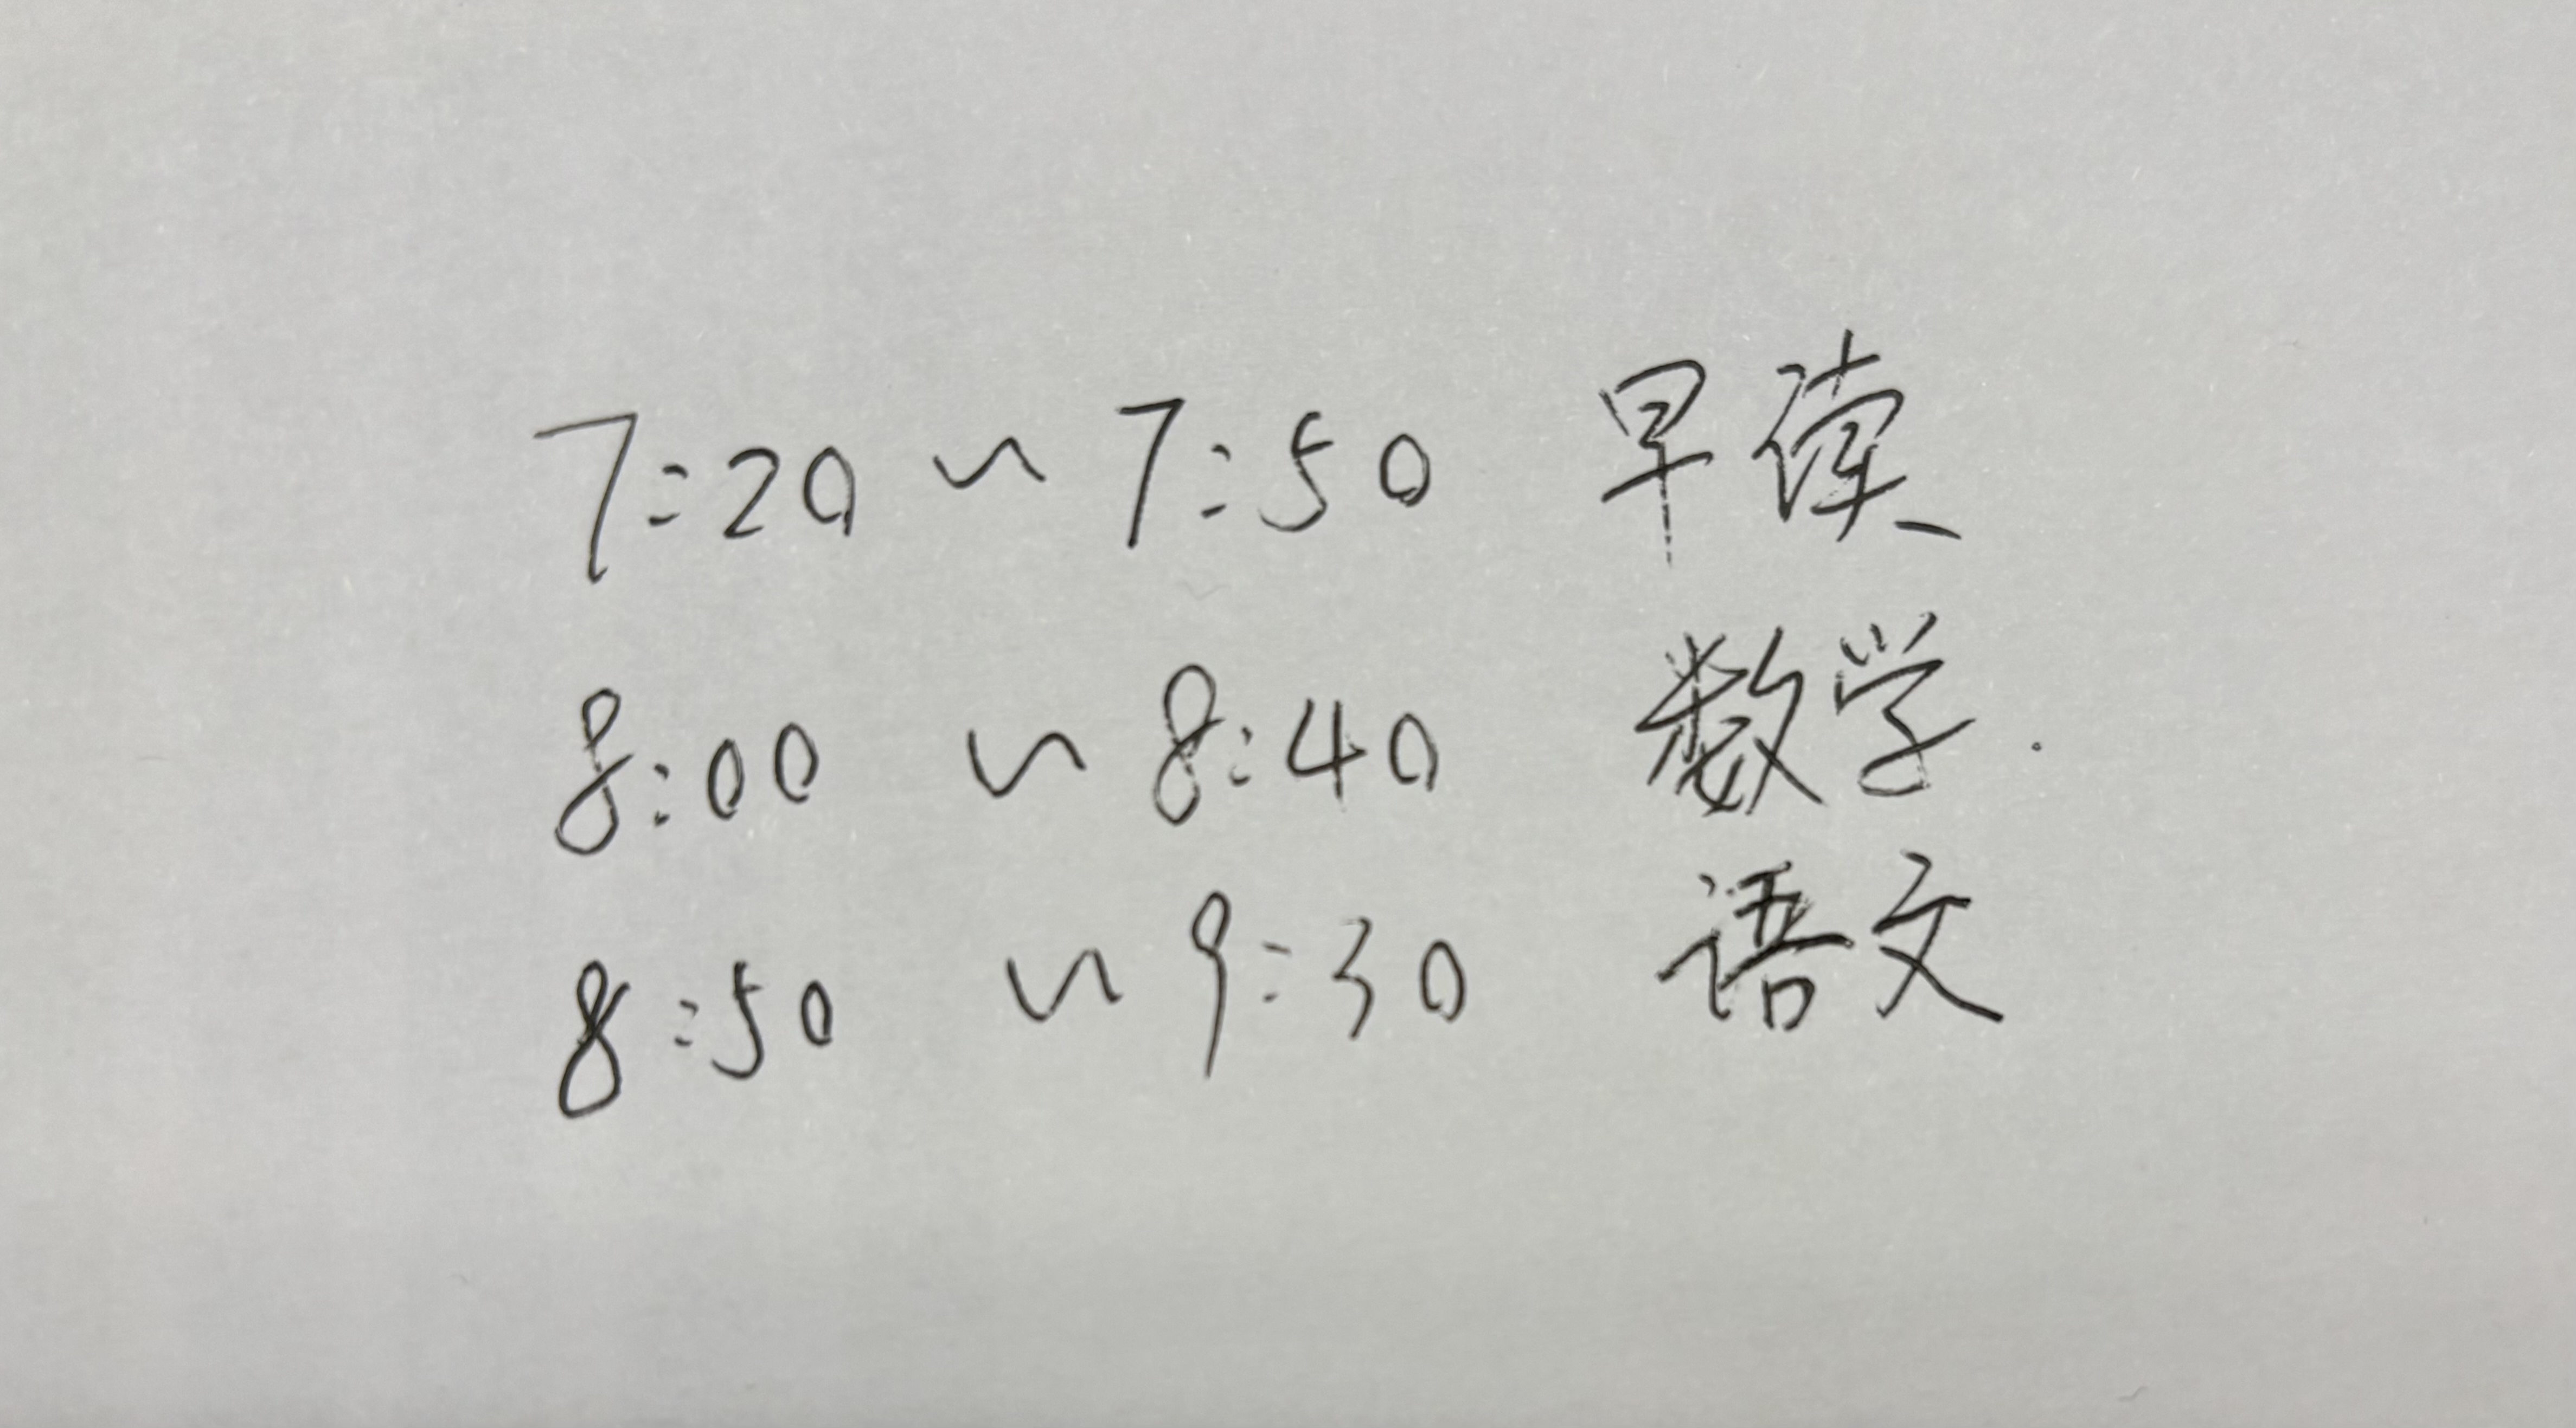 7:20 ~ 7:50 早读
8:00 ~ 8:40 数学.
8:50 ~ 9:30 语文